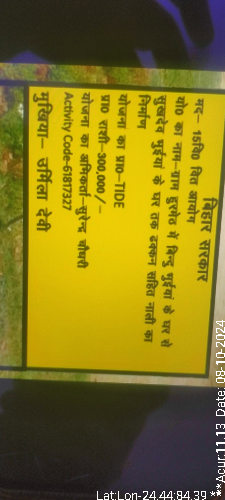 बिहार सरकार
मद:- 15वि0 वित आयोग
यो0 का नाम-ग्राम हुरमेठ में बिन्दु भुईयां के घर से
सुखदेव भुईयां के घर तक ढक्कन सहित नाली का
निर्माण
योजना का प्र0-TIDE
प्रा0 राशी-300,000 /-
योजना का अभिकर्ता-सुरेन्द्र चौधरी
Activity Code-61817327
मुखिया- उर्मिला देवी
Lat:Lon-24.44:84.39
***Acur:11.13, Date: 08-10-2024